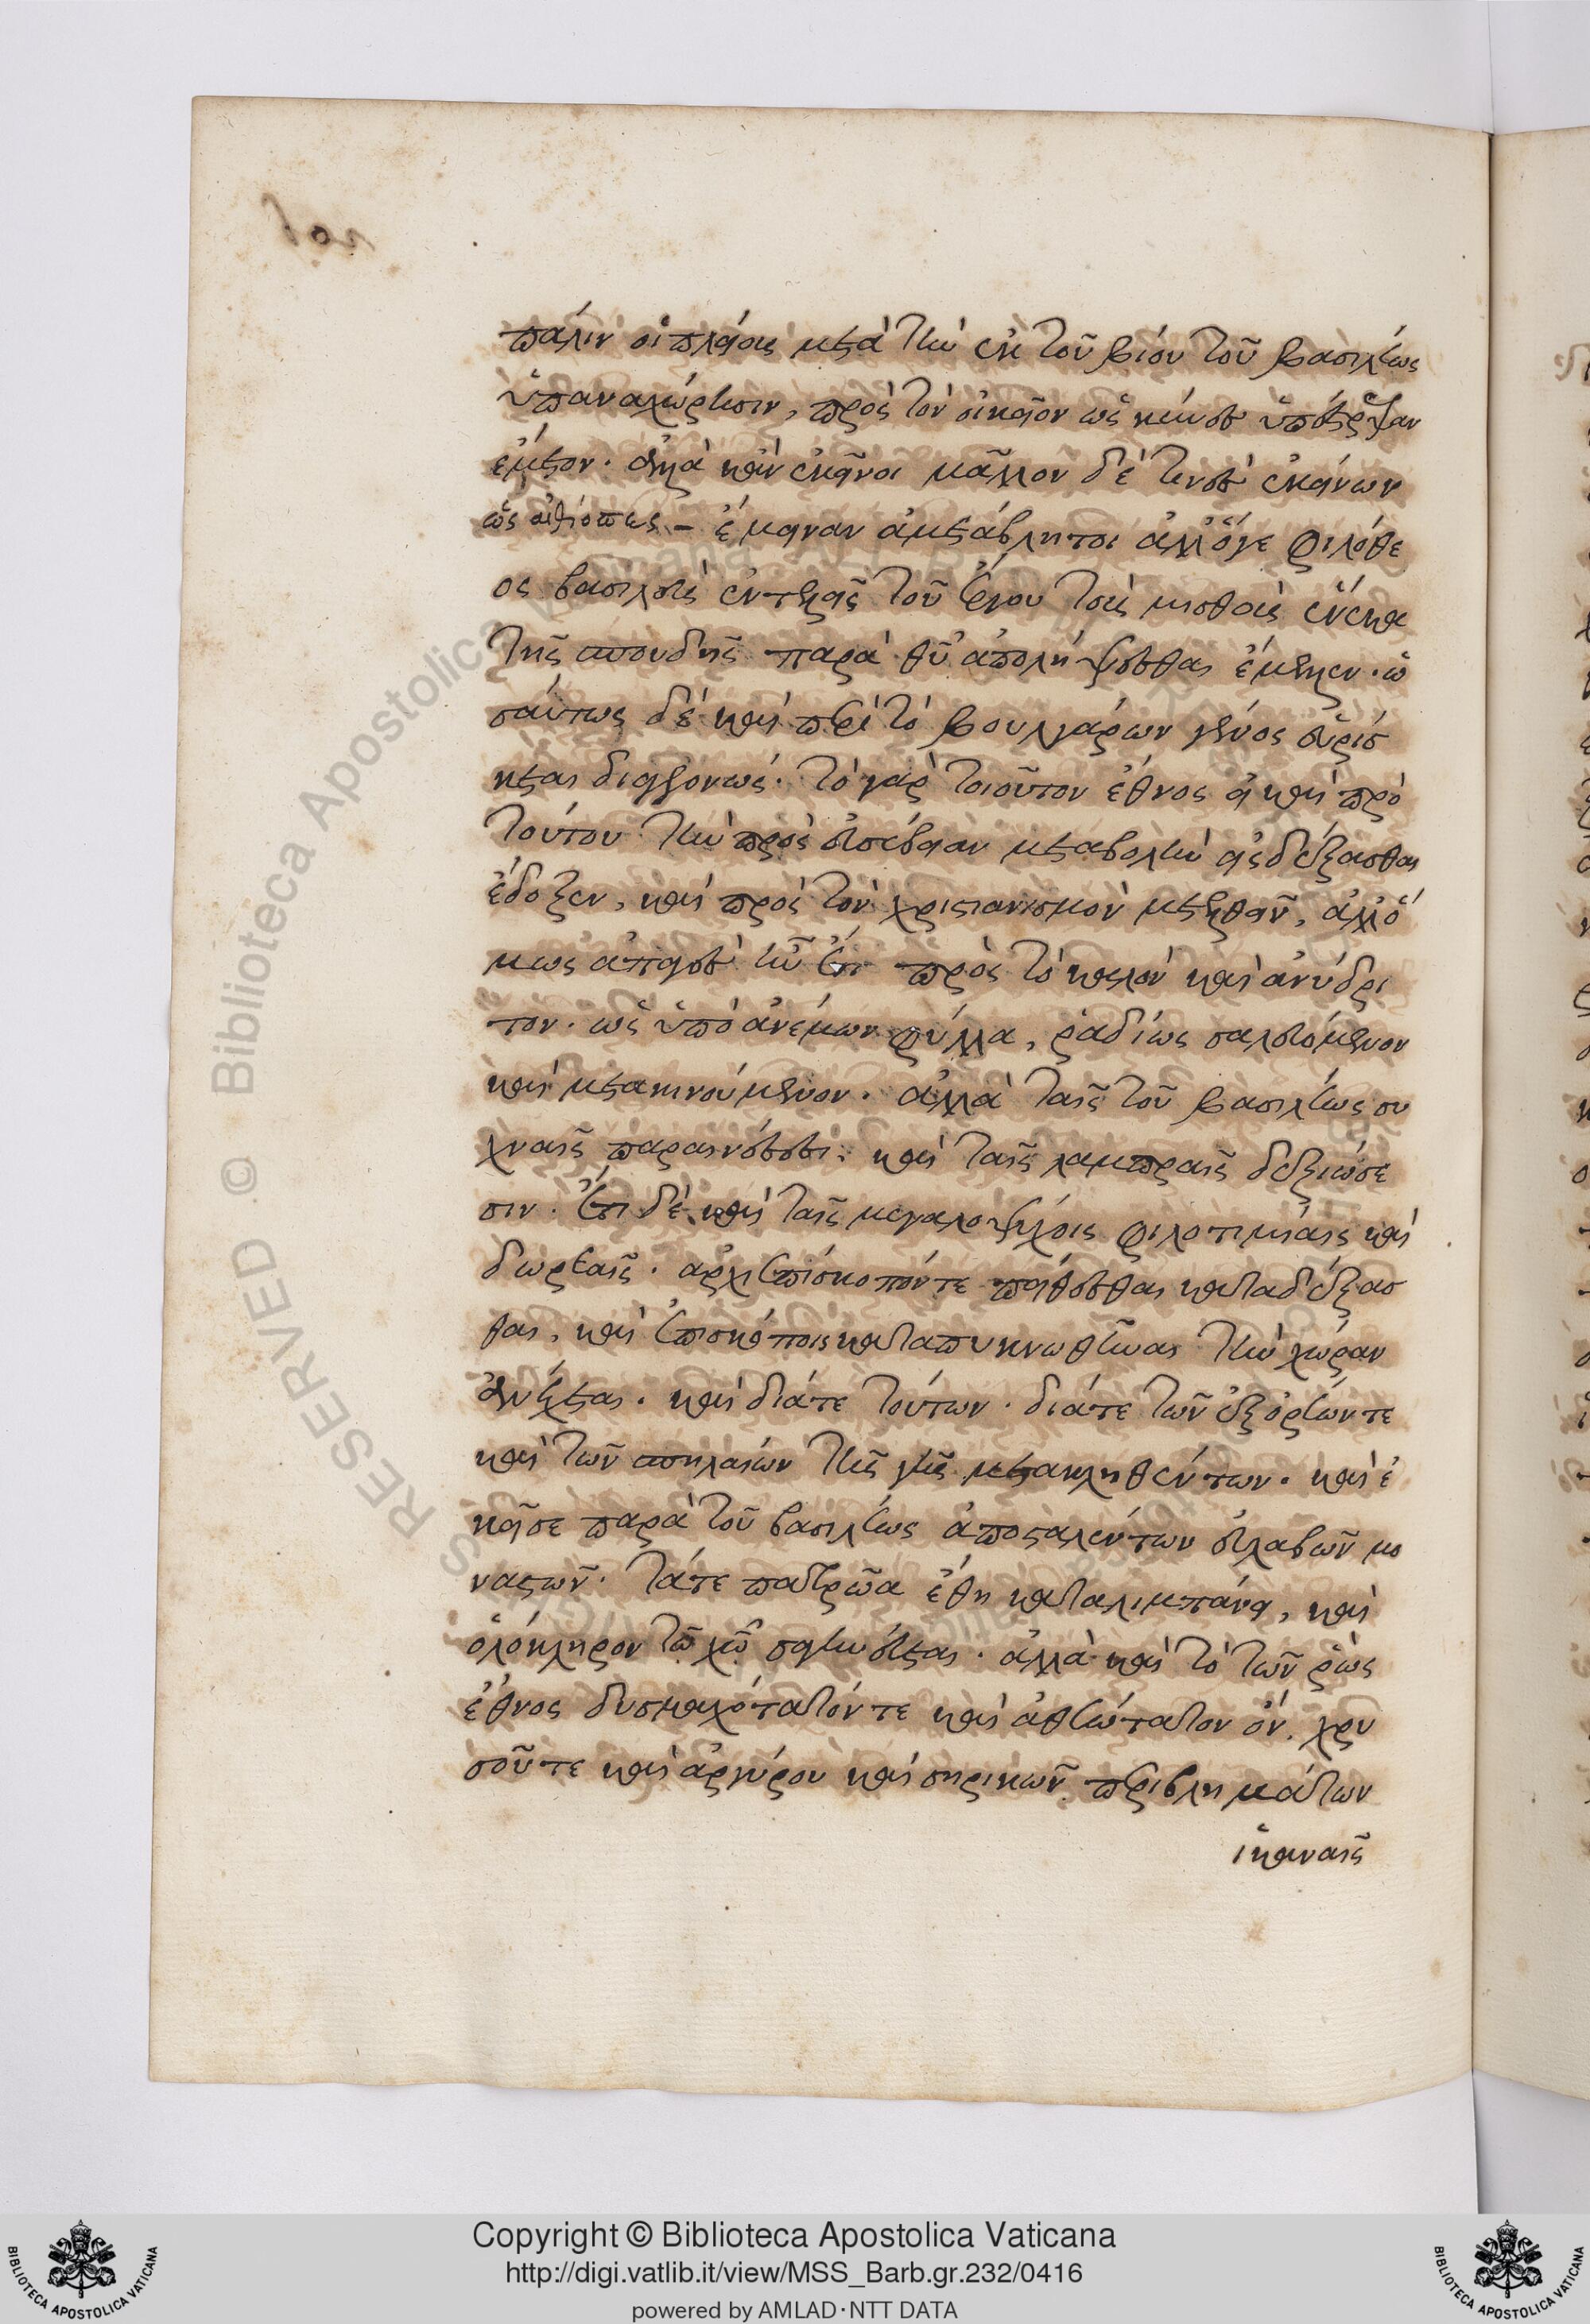 πάλιν οἱ πλείους μετὰ τὴν ἐκ τοῦ βίου τοῦ βασιλέως
ὑπαναχώρησιν, πρὸς τὸν οἰκεῖον ὡς κύνες ὑπέστρεψαν
ἔμετον. ἀλλὰ κἂν ἐκεῖνοι μᾶλλον δέ τινες ἐκείνων
ὡς αἰθίοπες - ἔμειναν ἀμετάβλητοι ἀλλ' ὅγε φιλόθε
ος βασιλεὺς ἐντελεῖς τοῦ ἔργου τοὺς μισθοὺς ἕνεκα
τῆς σπουδῆς παρὰ θῦ ἀπολήψεσθαι ἔμελλεν. ὡ
σαύτως δὲ καὶ περὶ τὸ βουλγάρων γένος εὑρίσ
κεται διαπονῶν. τὸ γὰρ τοιοῦτον ἔθνος εἰ καὶ πρὸ
τούτου τὴν πρὸς εὐσέβειαν μεταβολὴν εἰσδέξασθαι
ἔδοξεν, καὶ πρὸς τὸν χριστιανισμὸν μετελθεῖν, ἀλλ' ὅ
μως ἀπαγὲς ἦν ἔτι πρὸς τὸ καλὸν καὶ ἀνίδρυ
τον. ὡς ὑπὸ ἀνέμων φύλλα, ῥαδίως σαλευόμενον
καὶ μετακινούμενον. ἀλλὰ ταῖς τοῦ βασιλέως συ
χναῖς παραινέσεσι, καὶ ταῖς λαμπραῖς δεξιώσε
σιν. ἔτι δὲ καὶ ταῖς μεγαλοψύχοις φιλοτιμίαις καὶ
δωρεαῖς. ἀρχιεπίσκοπόν τε πείθεσθαι καταδέξασ
θαι, καὶ ἐπισκόποις καταπυκνωθῆναι τὴν χώραν
ἀνέχεται. καὶ διά τε τούτων. διά τε τῶν ἐξ ὀρέων τε
καὶ τῶν σπηλαίων τῆς γῆς μετακληθέντων. καὶ ἐ
κεῖσε παρὰ τοῦ βασιλέως ἀποσταλέντων εὐλαβῶν μο
ναστῶν. τά τε πατρῷα ἔθη καταλιμπάνει, καὶ
ὁλόκληρον τῷ χῶ σαγηνεύεται. ἀλλὰ καὶ τὸ τῶν ῥὼς
ἔθνος δυσμαχότατόν τε καὶ ἀθεώτατον ὄν. χρυ
σοῦ τε καὶ ἀργύρου καὶ σηρικῶν περιβλημάτων
ἱκαναῖς
Copyright © Biblioteca Apostolica Vaticana
http://digi.vatlib.it/view/MSS_Barb.gr.232/0416
powered by AMLAD·NTT DATA
BIBLIOTECA APOSTOLICA VATICANA
BIBLIOTECA APOSTOLICA VATICANA